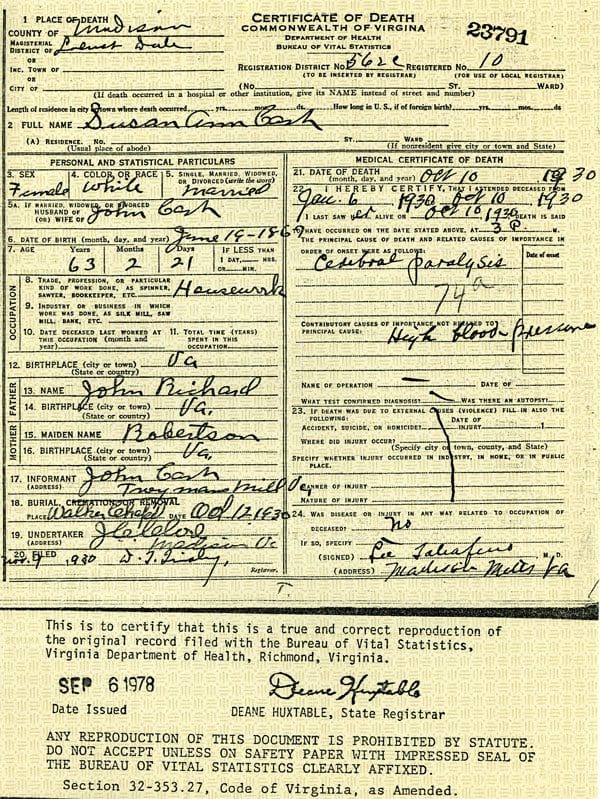 1 PLACE OF DEATH
COUNTY OF Madison
MAGISTERIAL DISTRICT OF Locust Dale
OR
INC. TOWN OF
OR
CITY OF
CERTIFICATE OF DEATH
COMMONWEALTH OF VIRGINIA
DEPARTMENT OF HEALTH
BUREAU OF VITAL STATISTICS
23791
REGISTRATION DISTRICT NO. 562c REGISTERED NO. 10
(TO BE INSERTED BY REGISTRAR) (FOR USE OF LOCAL REGISTRAR)
(No. ST. WARD)
(If death occurred in a hospital or other institution, give its NAME instead of street and number)
Length of residence in city or town where death occurred yrs. mos. ds. How long in U.S., if of foreign birth? yrs. mos. ds
2 FULL NAME Susan Ann Cash
(A) RESIDENCE. No. ST. WARD
(Usual place of abode) (If nonresident give city or town and State)
PERSONAL AND STATISTICAL PARTICULARS
3. SEX 4. COLOR OR RACE 5. SINGLE, MARRIED, WIDOWED, OR DIVORCED (write the word)
Female White Married
5A. IF MARRIED, WIDOWED, OR DIVORCED
HUSBAND OF
(OR) WIFE OF John Cash
6. DATE OF BIRTH (month, day, and year) June 19-1867
7. AGE Years Months Days IF LESS THAN
1 DAY, HRS.
OR MIN.
63 2 21
OCCUPATION
8. TRADE, PROFESSION, OR PARTICULAR
KIND OF WORK DONE, AS SPINNER,
SAWYER, BOOKKEEPER, ETC. Housework
9. INDUSTRY OR BUSINESS IN WHICH
WORK WAS DONE, AS SILK MILL, SAW
MILL, BANK, ETC.
10. DATE DECEASED LAST WORKED AT
THIS OCCUPATION (month and
year)
11. TOTAL TIME (YEARS)
SPENT IN THIS
OCCUPATION
12. BIRTHPLACE (city or town) Va
(State or country)
FATHER
13. NAME John Richard
14. BIRTHPLACE (city or town) Va.
(State or country)
MOTHER
15. MAIDEN NAME Robertson
16. BIRTHPLACE (city or town) Va,
(State or country)
17. INFORMANT John Cash
(ADDRESS) Mill Va
18. BURIAL, CREMATION OR REMOVAL
PLACE Walker Chapel DATE Oct 12 1930
19. UNDERTAKER
(ADDRESS) Madison Va
20. FILED Nov. 9 1930
Registrar.
MEDICAL CERTIFICATE OF DEATH
21. DATE OF DEATH
(month, day, and year) Oct 10 1930
22. I HEREBY CERTIFY, THAT I ATTENDED DECEASED FROM
Jan. 6, 1930 Oct 10 1930
I LAST SAW ALIVE ON Oct 10, 1930 DEATH IS SAID
TO HAVE OCCURRED ON THE DATE STATED ABOVE, AT 3 P. M.
THE PRINCIPAL CAUSE OF DEATH AND RELATED CAUSES OF IMPORTANCE IN
ORDER OF ONSET WERE AS FOLLOWS:
Date of onset
Cerebral paralysis
74a
CONTRIBUTORY CAUSES OF IMPORTANCE NOT RELATED TO
PRINCIPAL CAUSE:
High blood pressure
NAME OF OPERATION DATE OF
WHAT TEST CONFIRMED DIAGNOSIS? WAS THERE AN AUTOPSY?
23. IF DEATH WAS DUE TO EXTERNAL CAUSES (VIOLENCE) FILL IN ALSO THE
FOLLOWING:
ACCIDENT, SUICIDE, OR HOMICIDE? DATE OF INJURY 1
WHERE DID INJURY OCCUR?
(Specify city or town, county, and State)
SPECIFY WHETHER INJURY OCCURRED IN INDUSTRY, IN HOME, OR IN PUBLIC
PLACE.
MANNER OF INJURY
NATURE OF INJURY
24. WAS DISEASE OR INJURY IN ANY WAY RELATED TO OCCUPATION OF
DECEASED? No
IF SO, SPECIFY
(SIGNED) M.D.
(ADDRESS) Madison Mills Va
This is to certify that this is a true and correct reproduction of
the original record filed with the Bureau of Vital Statistics,
Virginia Department of Health, Richmond, Virginia.
SEP 6 1978
Date Issued
Deane Huxtable
DEANE HUXTABLE, State Registrar
ANY REPRODUCTION OF THIS DOCUMENT IS PROHIBITED BY STATUTE.
DO NOT ACCEPT UNLESS ON SAFETY PAPER WITH IMPRESSED SEAL OF
THE BUREAU OF VITAL STATISTICS CLEARLY AFFIXED.
Section 32-353.27, Code of Virginia, as Amended.